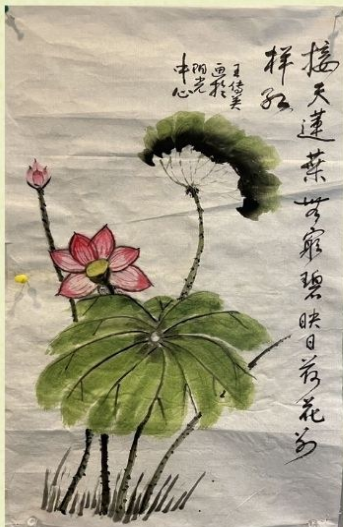 接天蓮葉無窮碧映日荷花别
样红
画於
阳光
中心